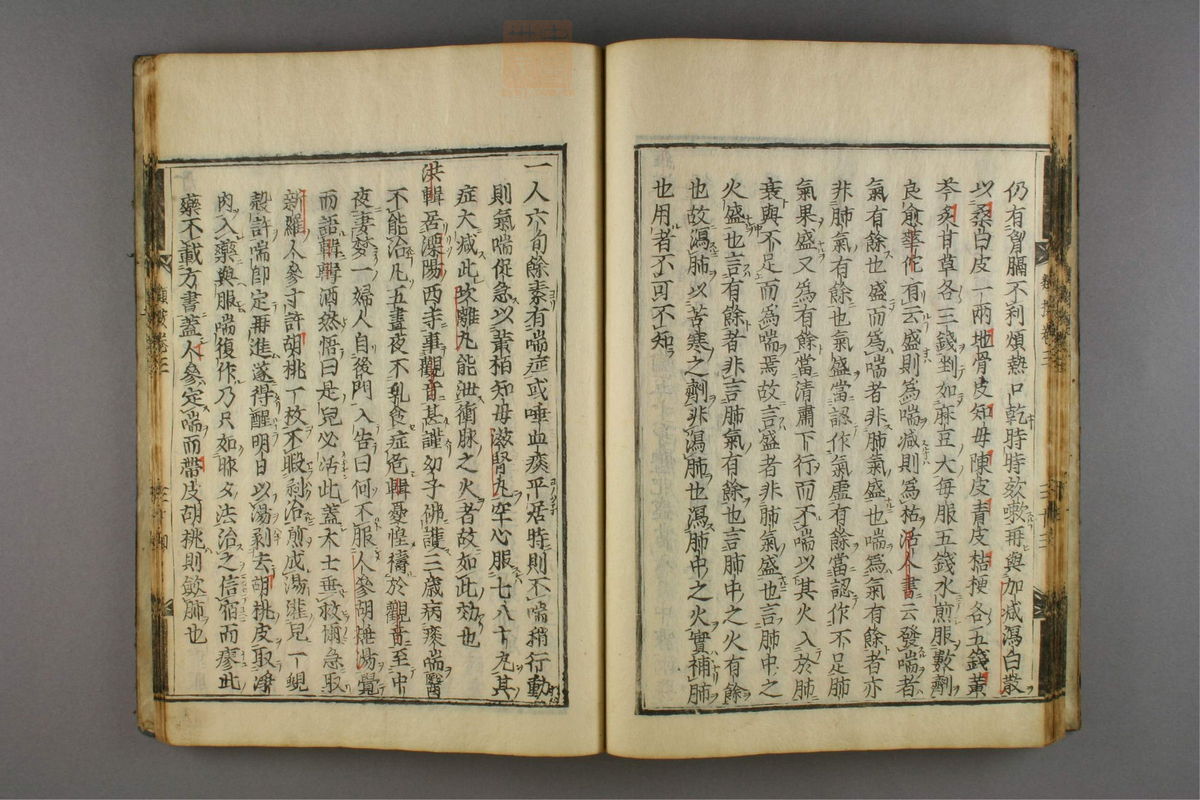 仍有胷膈不利煩熱口乾時時欬嗽再與加減瀉白散
以桑白皮一兩地骨皮知母陳皮青皮桔梗各五錢黃
芩炙甘草各三錢剉如麻豆大每服五錢水煎服數劑
良愈華佗有云盛則爲喘減則爲枯活人書云發喘者
氣有餘也盛而爲喘者非肺氣盛也喘爲氣有餘者亦
非肺氣有餘也氣盛當認作氣虛有餘當認作不足肺
氣果盛又爲有餘當清肅下行而不喘以其火入於肺
衰與不足而爲喘焉故言盛者非肺氣盛也言肺中之
火盛也言有餘者非言肺氣有餘也言肺中之火有餘
也故瀉肺以苦寒之劑非瀉肺也瀉肺中之火實補肺
也用者不可不知
一人六旬餘素有喘症或唾血痰平居時則不喘稍行動
則氣喘促急以黃栢知母滋腎丸空心服七八十丸其
症大減此坎離丸能泄衝脉之火者故如此効也
洪輯居溧陽西寺事觀音甚謹幼子佛護三歲病痰喘醫
不能治凡五晝夜不乳食症危輯憂惶禱於觀音至中
夜妻夢一婦人自後門入告曰何不服人參胡桃湯覺
而語輯輯洒然悟曰是兒必活此蓋大士垂救爾急取
新羅人參寸許胡桃一枚不暇剥治煎成湯灌兒一蜆
殼許喘卽定再進遂得醒明日以湯剥去胡桃皮取淨
肉入藥與服喘復作乃只如昨夕法治之信宿而瘳此
藥不載方書蓋人參定喘而帶皮胡桃則斂肺也